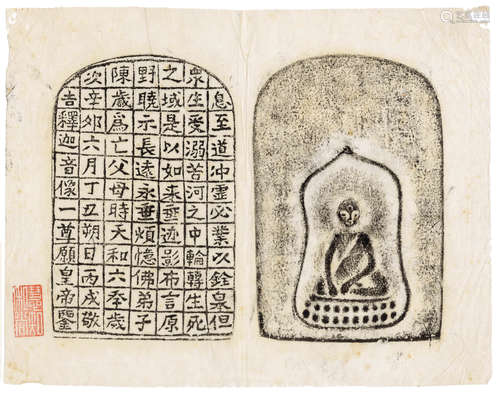 息至道冲霊必業以銓泉但
衆生愛溺苦河之中輪轉生死
之域是以如来垂迹影布言原
野曉示長遠永垂煩憶佛弟子
陳歳爲亡父母時天和六年歳
次辛卯六月丁丑朔日丙戌敬
吉釋迦音像一尊願皇帝鑒